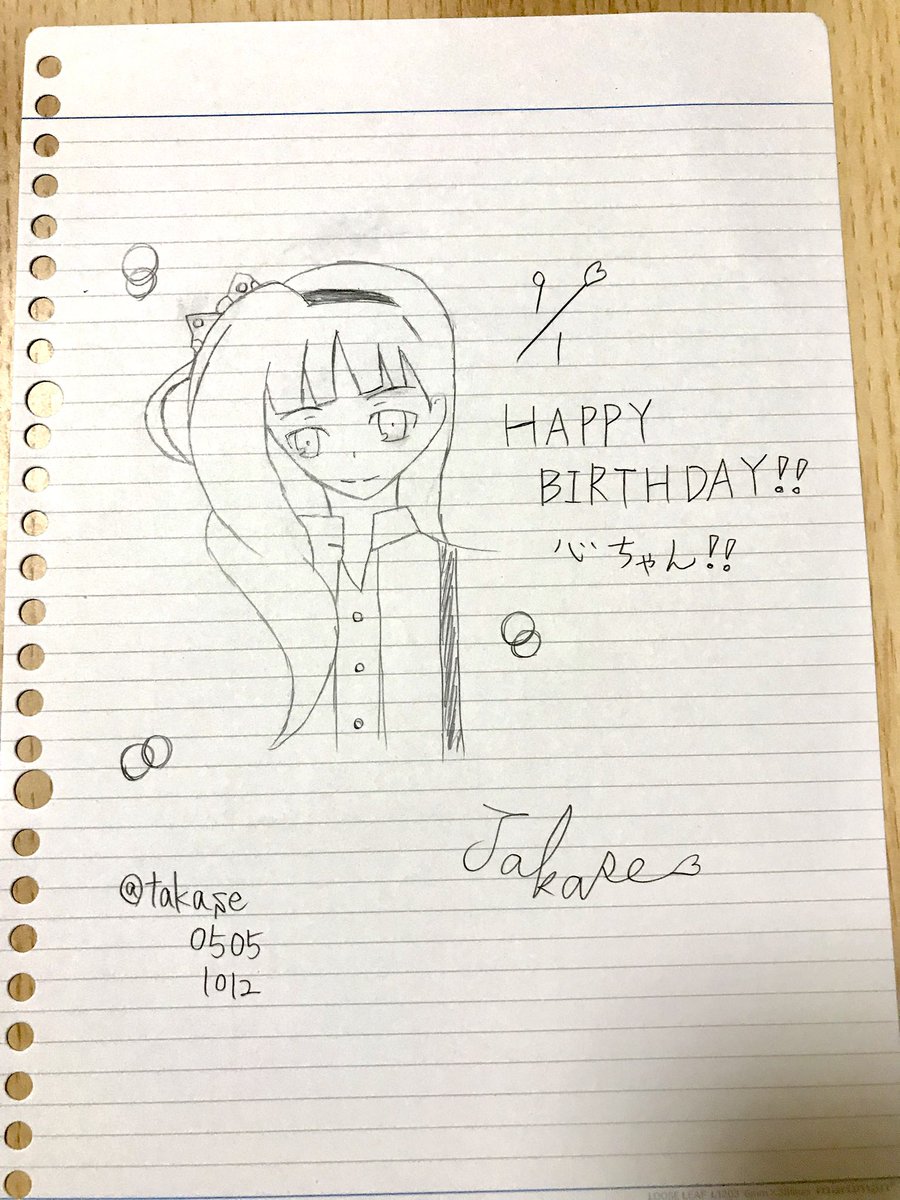 9/1
HAPPY
BIRTHDAY!!
心ちゃん!!
Takase
@takase
0505
1012